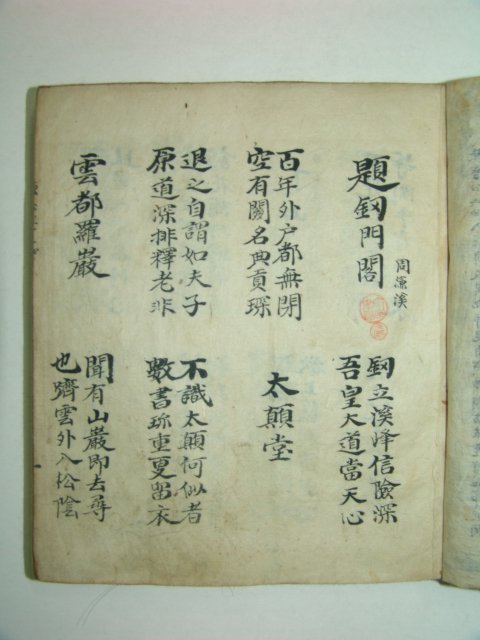 題釖門閣
周濂溪
釖立溪峰信險深
吾皇大道當天心
百年外户都無閉
空有關名典貢琛
太顛堂
退之自謂如夫子
原道深排釋老非
不識太顛何似者
數書珎重更畄衣
雲都羅巖
聞有山巖即去尋
也躋雲外入松陰